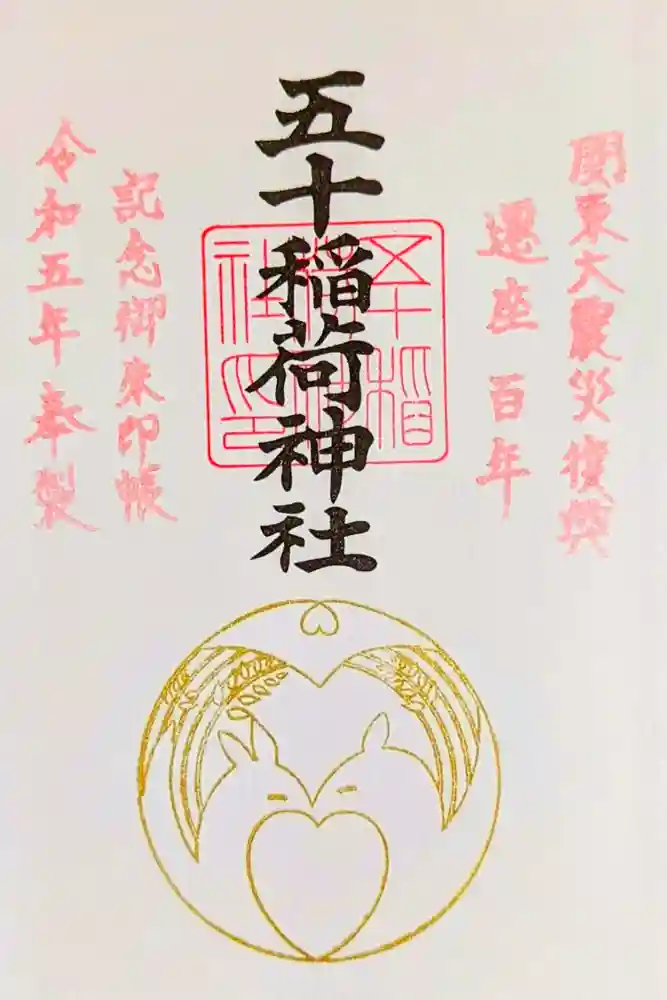 関東大震災復興
遷座 百年
五十稲荷神社
記念御朱印帳
令和五年奉製